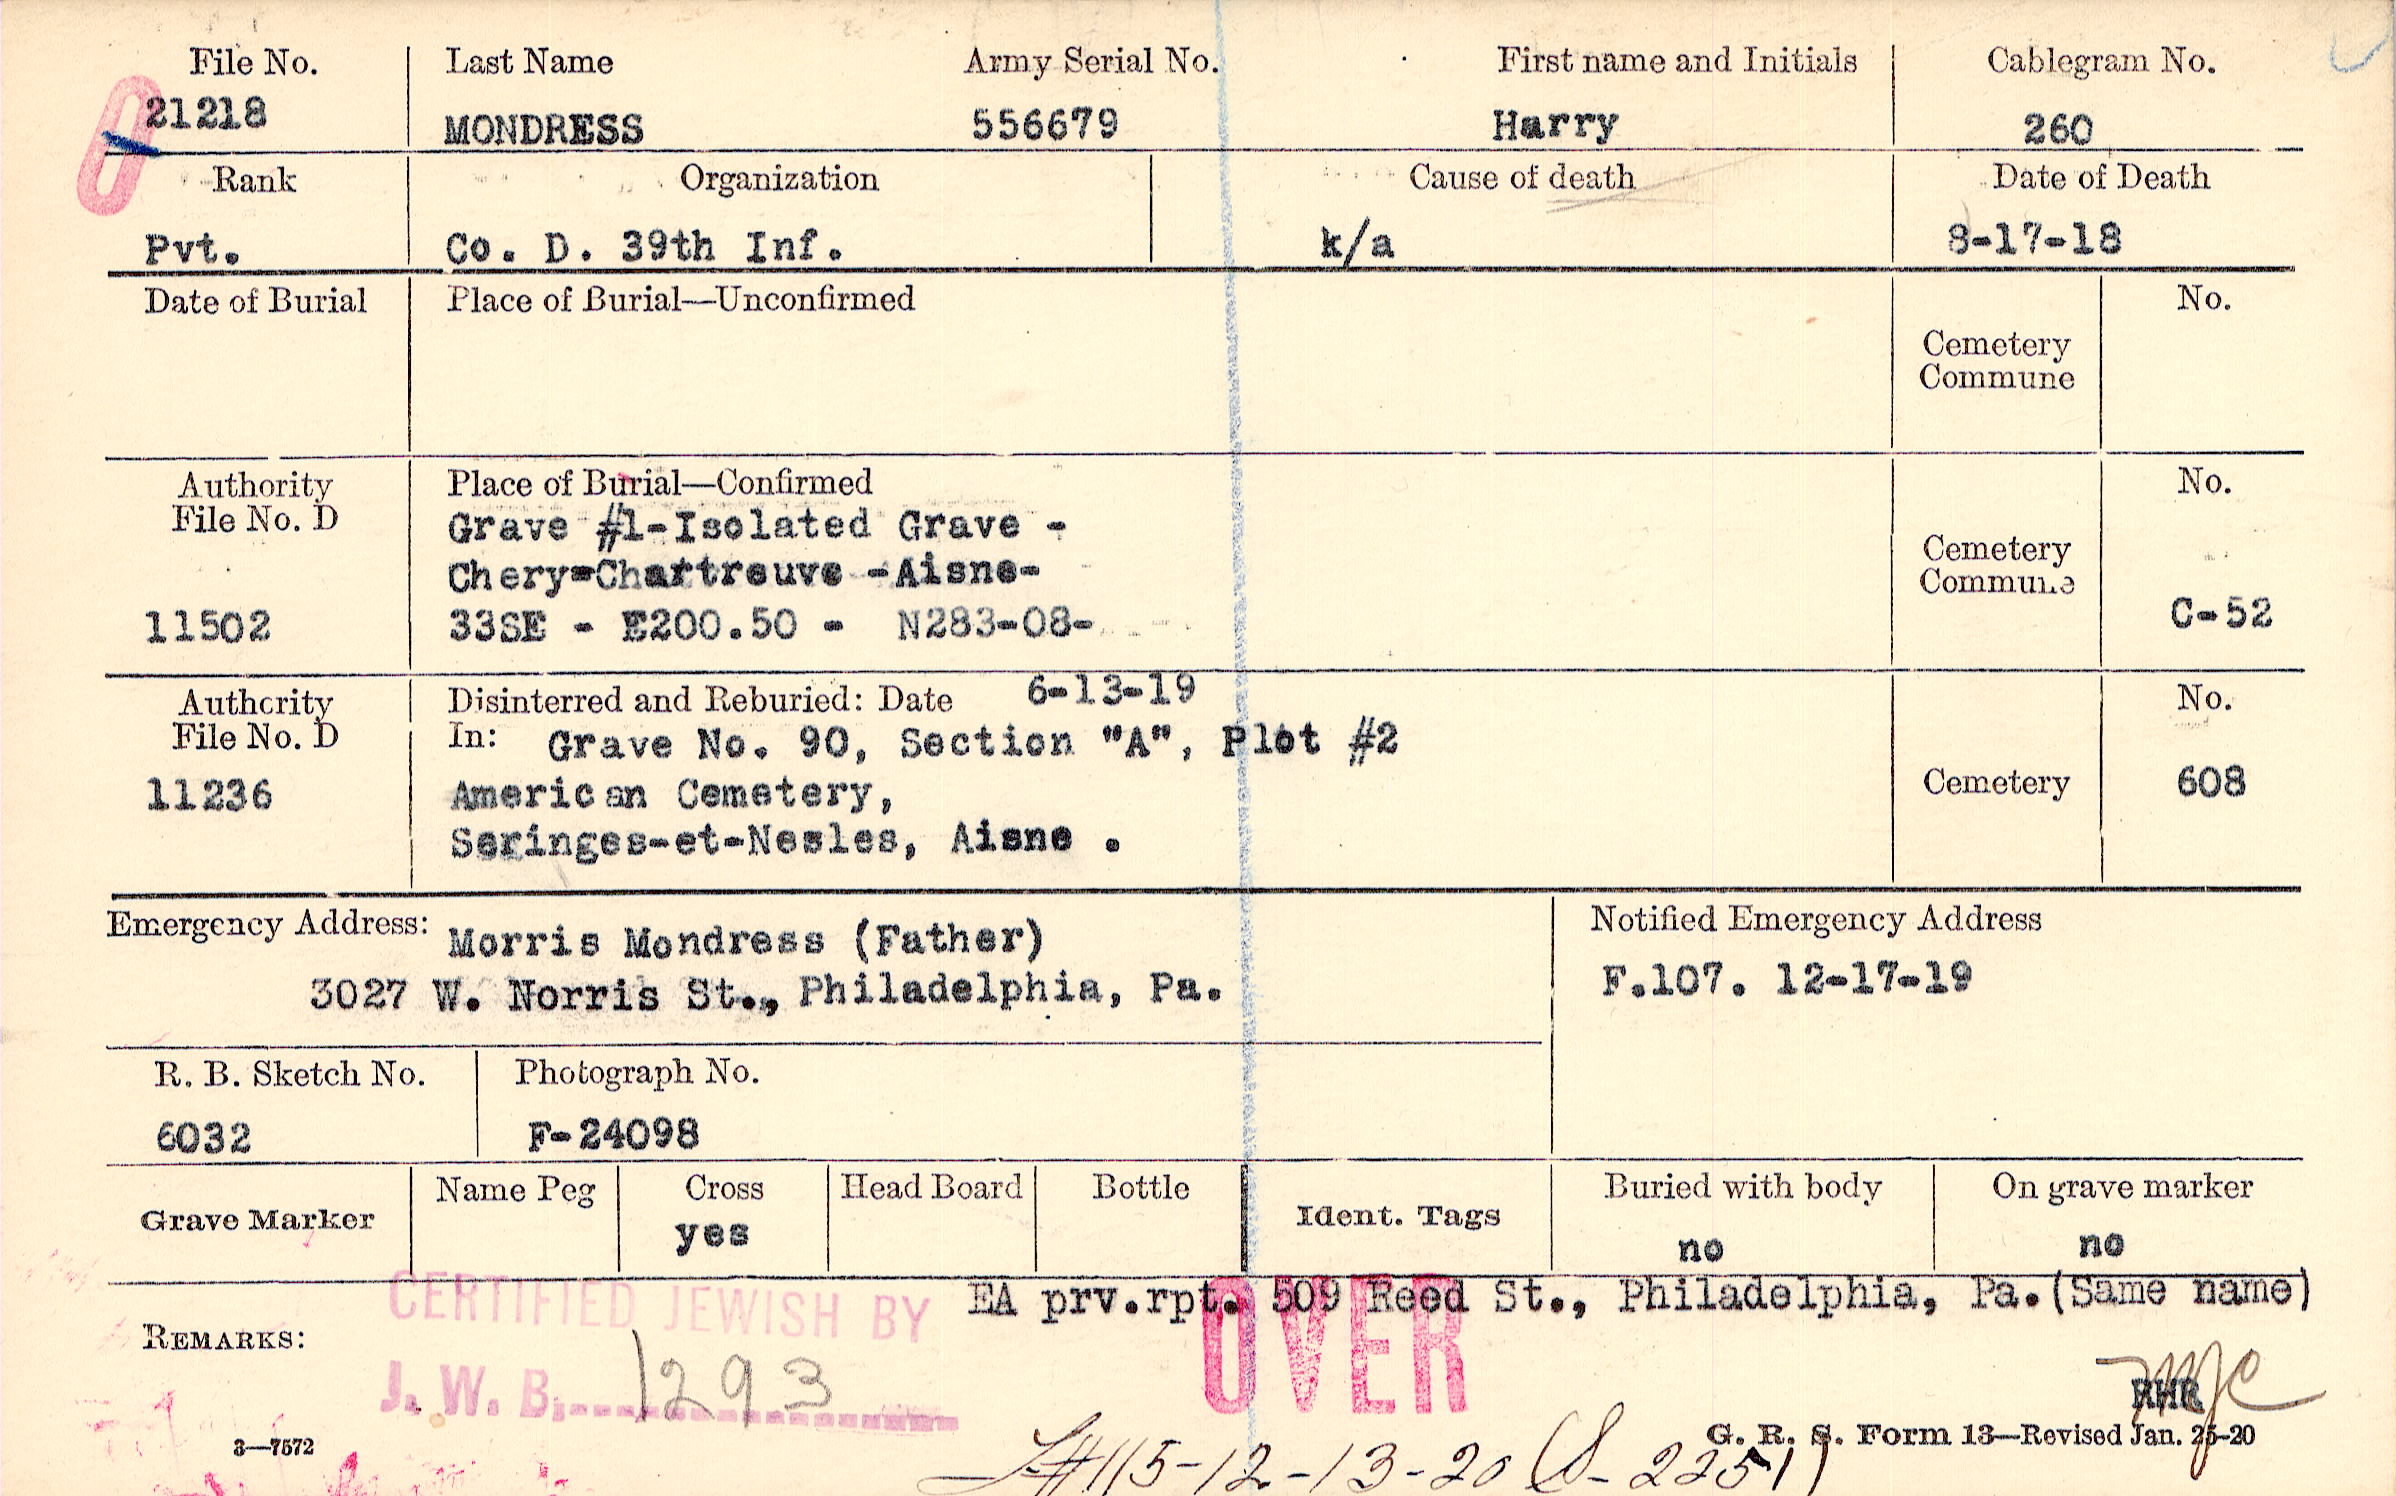 File No. Last Name Army Serial No. First name and Initials Cablegram No.
21218 MONDRESS 556679 Harry 260
Rank Organization Cause of death Date of Death
Pvt. Co. D. 39th Inf. k/a 8-17-18
Date of Burial Place of Burial—Unconfirmed No.
Cemetery
Commune
Authority Place of Burial—Confirmed No.
File No. D Grave #1-Isolated Grave -
Chery-Chartreuve -Aisne- Cemetery
Commune
11502 33SE - E200.50 - N283-08- C-52
Authority Disinterred and Reburied: Date 6-13-19 No.
File No. D In: Grave No. 90, Section "A", Plot #2
11236 American Cemetery, Cemetery 608
Seringes-et-Nesles, Aisne .
Emergency Address: Morris Mondress (Father) Notified Emergency Address
3027 W. Norris St., Philadelphia, Pa. F.107. 12-17-19
R. B. Sketch No. Photograph No.
6032 F-24098
Grave Marker Name Peg Cross Head Board Bottle Ident. Tags Buried with body On grave marker
yes no no
EA prv.rpt. 509 Reed St., Philadelphia, Pa.(Same name)
CERTIFIED JEWISH BY
REMARKS:
J. W. B. 1293
OVER
RHR
3—7572
G. R. S. Form 13—Revised Jan. 26-20
115-12-13-20